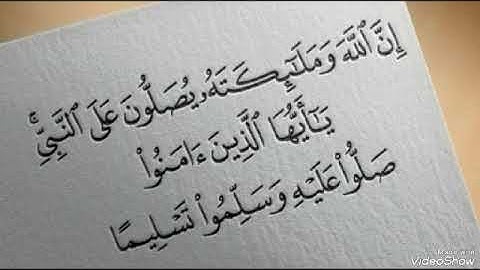 إِنَّ ٱللَّهَ وَمَلَـٰٓئِكَتَهُۥ يُصَلُّونَ عَلَى ٱلنَّبِىِّ ۚ
يَـٰٓأَيُّهَا ٱلَّذِينَ ءَامَنُوا۟
صَلُّوا۟ عَلَيْهِ وَسَلِّمُوا۟ تَسْلِيمًا
Made with
VideoShow